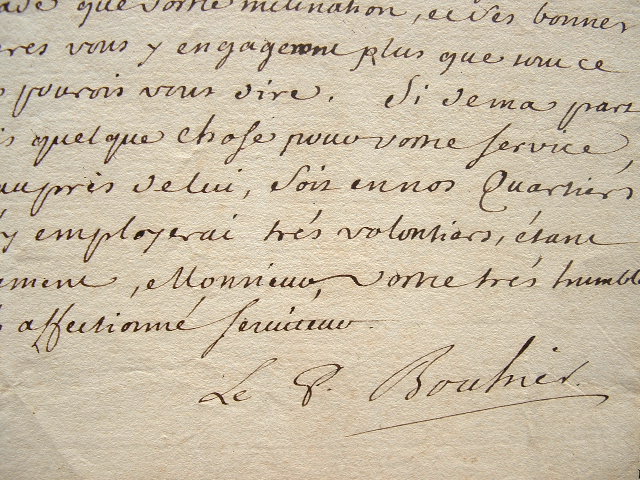 que votre inclination, et des bonnes
vous y engageront plus que tout ce
pourois vous dire. Si de ma part
quelque chose pour votre service,
auprès de lui, soit en nos Quartiers
y employerai trés volontiers, étant
Monsieur, votre trés humble
affectionné serviteur
Le P. Bouhier.